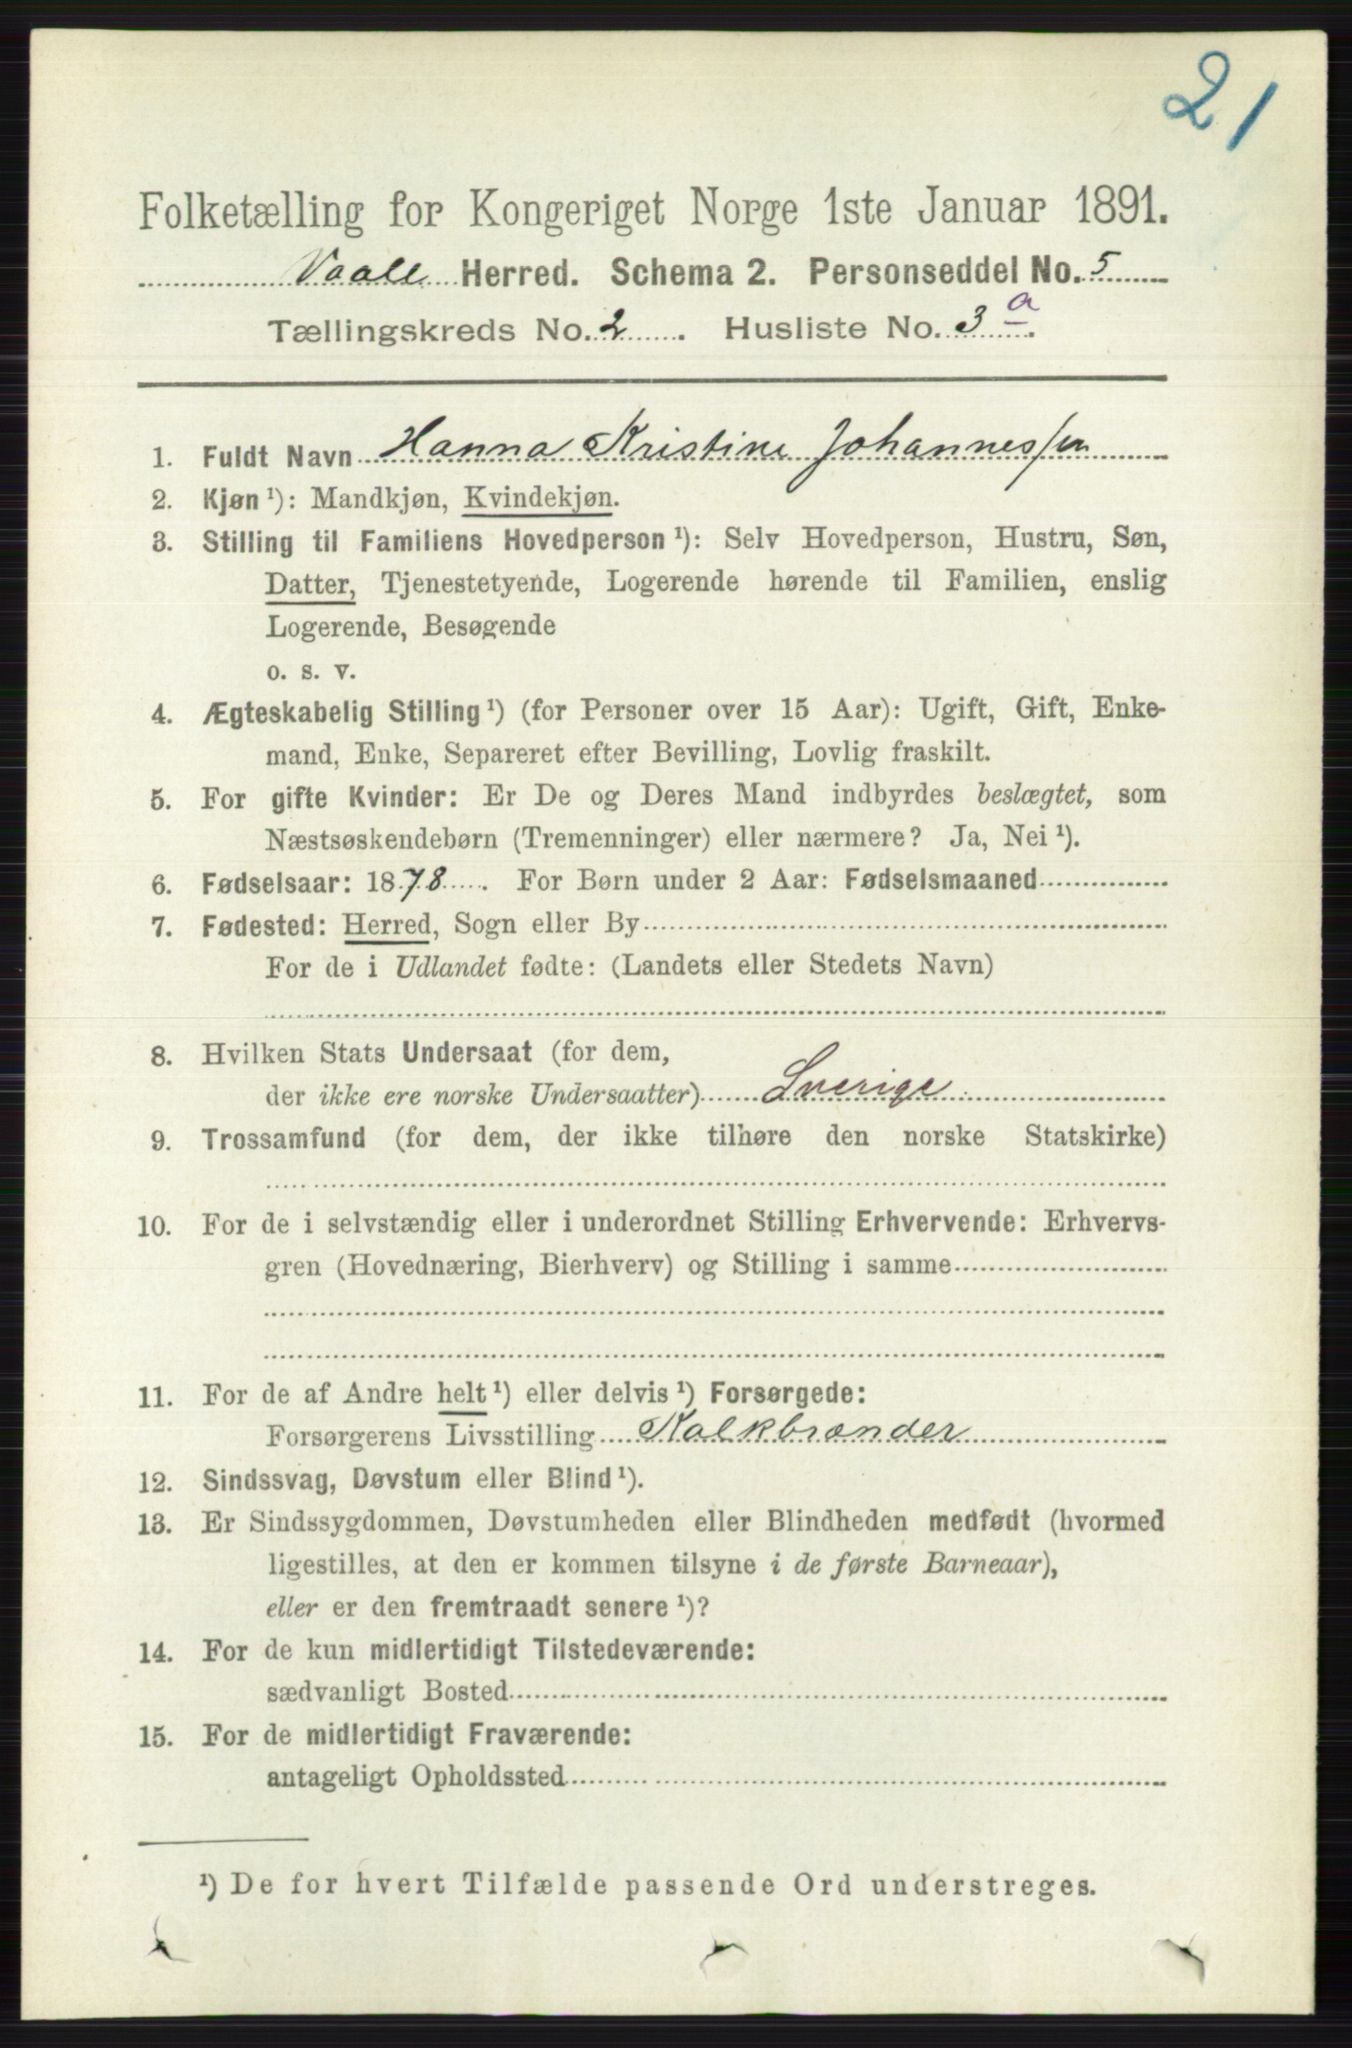 21
Folketælling for Kongeriget Norge 1ste Januar 1891.
Vaale Herred. Schema 2. Personseddel No. 5
Tællingskreds No. 2. Husliste No. 3 a.
1. Fuldt Navn Hanna Kristine Johannessen
2. Kjøn ¹): Mandkjøn, Kvindekjøn.
3. Stilling til Familiens Hovedperson ¹): Selv Hovedperson, Hustru, Søn,
Datter, Tjenestetyende, Logerende hørende til Familien, enslig
Logerende, Besøgende
o. s. v.
4. Ægteskabelig Stilling ¹) (for Personer over 15 Aar): Ugift, Gift, Enke-
mand, Enke, Separeret efter Bevilling, Lovlig fraskilt.
5. For gifte Kvinder: Er De og Deres Mand indbyrdes beslægtet, som
Næstsøskendebørn (Tremenninger) eller nærmere? Ja, Nei ¹).
6. Fødselsaar: 1878. For Børn under 2 Aar: Fødselsmaaned
7. Fødested: Herred, Sogn eller By
For de i Udlandet fødte: (Landets eller Stedets Navn)
8. Hvilken Stats Undersaat (for dem,
der ikke ere norske Undersaatter) Sverige.
9. Trossamfund (for dem, der ikke tilhøre den norske Statskirke)
10. For de i selvstændig eller i underordnet Stilling Erhvervende: Erhvervs-
gren (Hovednæring, Bierhverv) og Stilling i samme
11. For de af Andre helt ¹) eller delvis ¹) Forsørgede:
Forsørgerens Livsstilling Kalkbrænder
12. Sindssvag, Døvstum eller Blind ¹).
13. Er Sindssygdommen, Døvstumheden eller Blindheden medfødt (hvormed
ligestilles, at den er kommen tilsyne i de første Barneaar),
eller er den fremtraadt senere ¹)?
14. For de kun midlertidigt Tilstedeværende:
sædvanligt Bosted
15. For de midlertidigt Fraværende:
antageligt Opholdssted
¹) De for hvert Tilfælde passende Ord understreges.